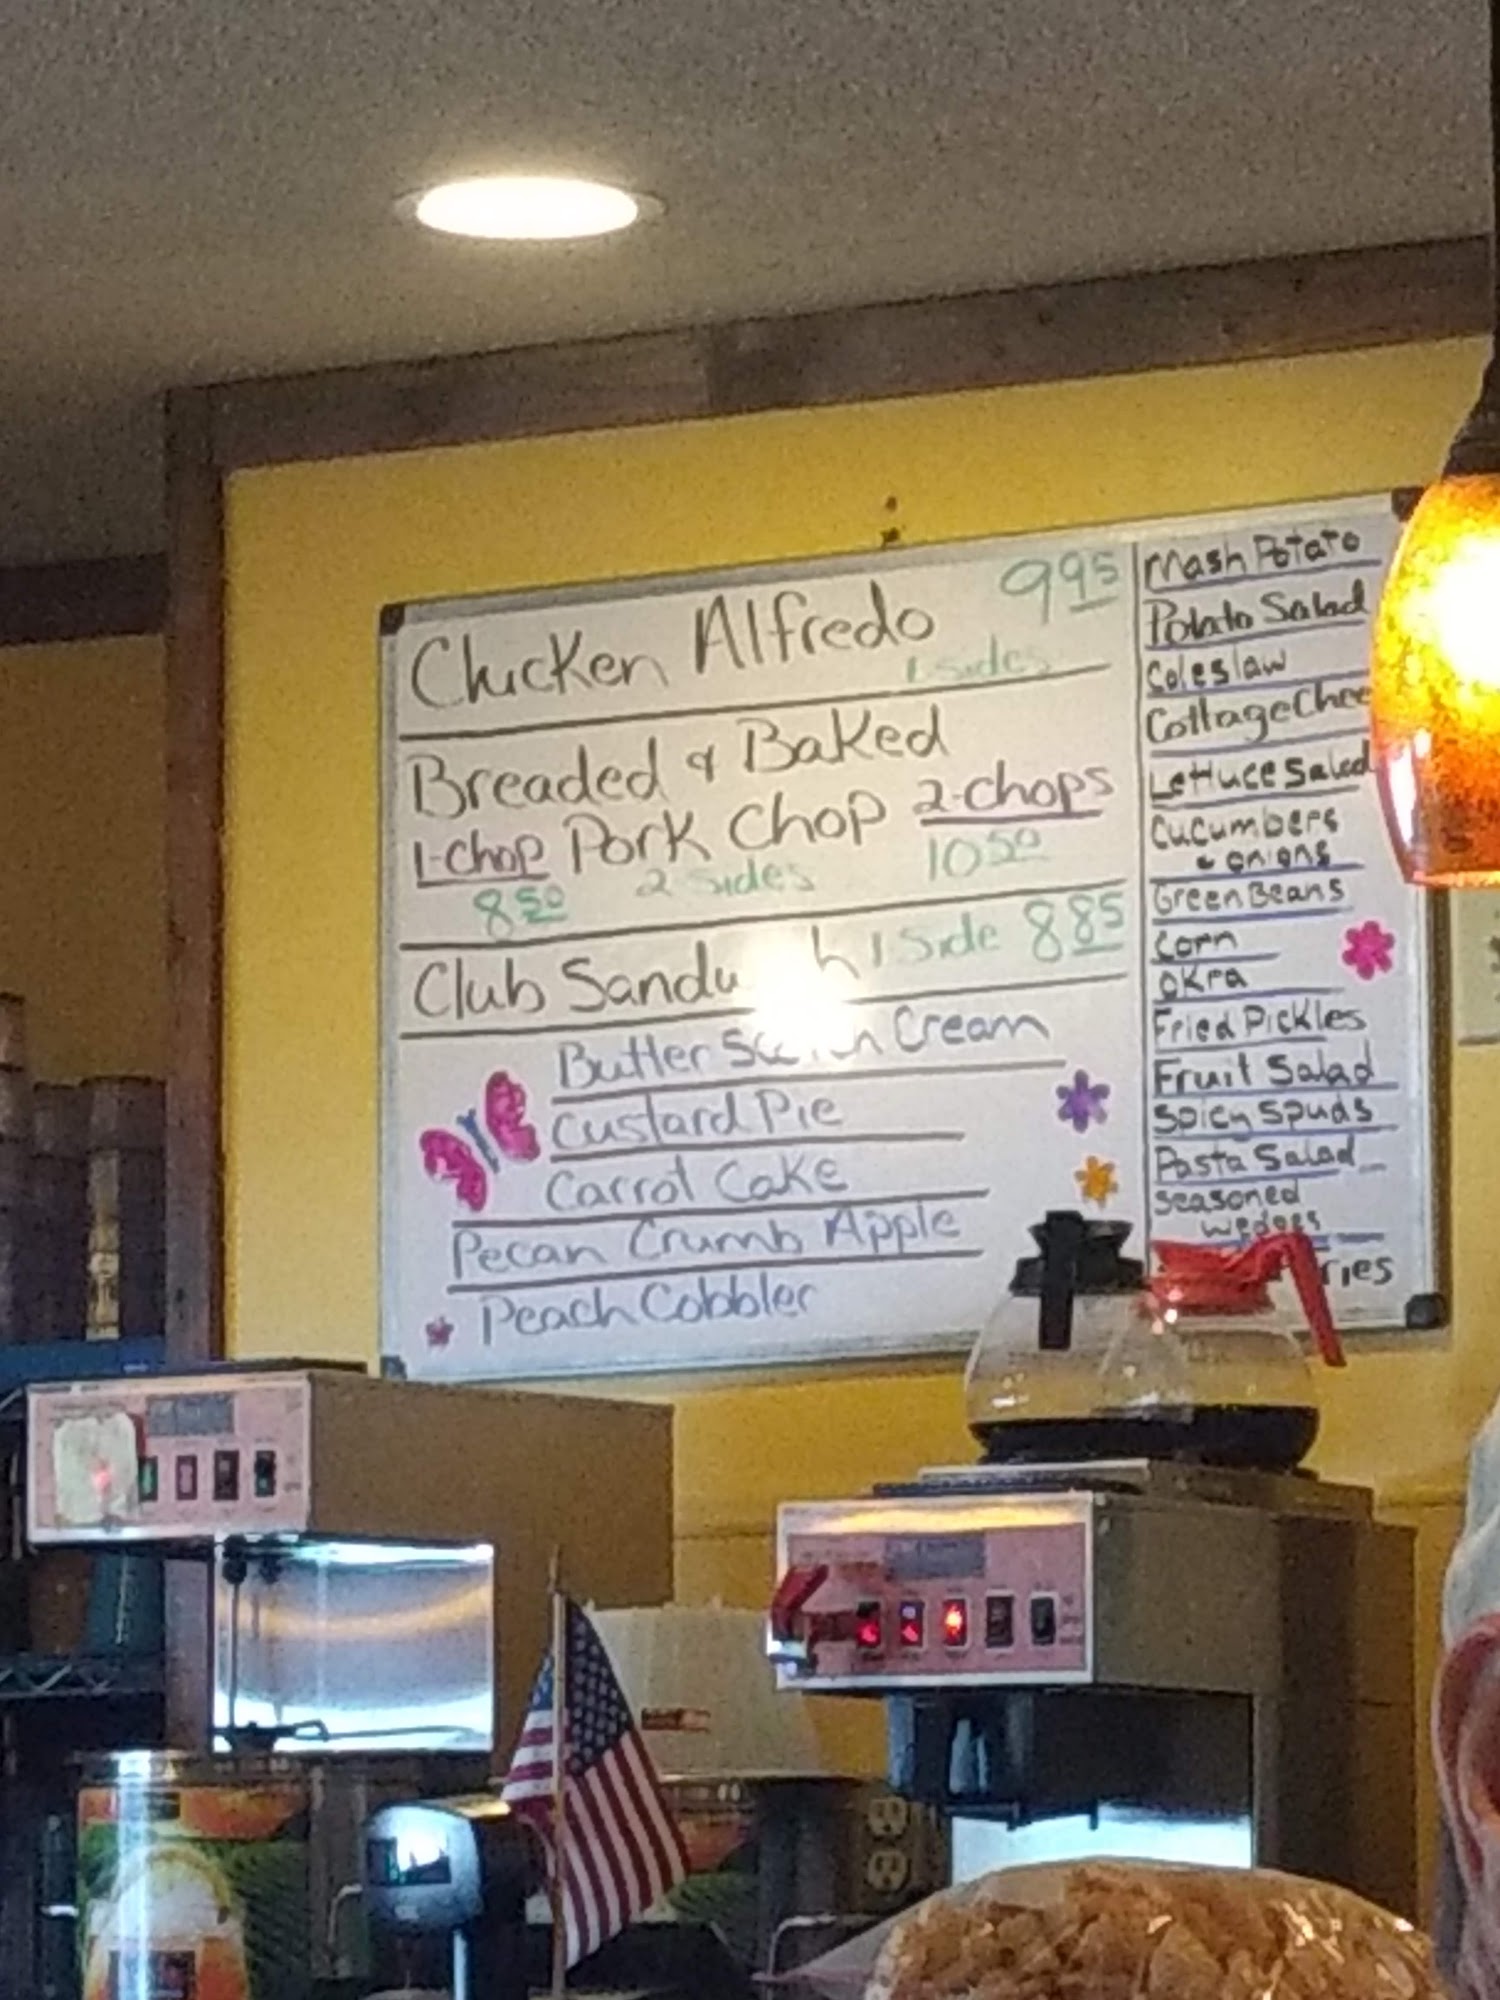 Chicken Alfredo 9 95
1 sides
Breaded & Baked
1-Chop Pork Chop 2-Chops
8 50 2 sides 10 50
Club Sandw h 1 Side 8 85
Butter Sc ch Cream
Custard Pie
Carrot Cake
Pecan Crumb Apple
Peach Cobbler
Mash Potato
Potato Salad
Coleslaw
Cottage Chee
Lettuce Salad
Cucumbers
& onions
Green Beans
Corn
Okra
Fried Pickles
Fruit Salad
Spicy Spuds
Pasta Salad
Seasoned
wedges
ries